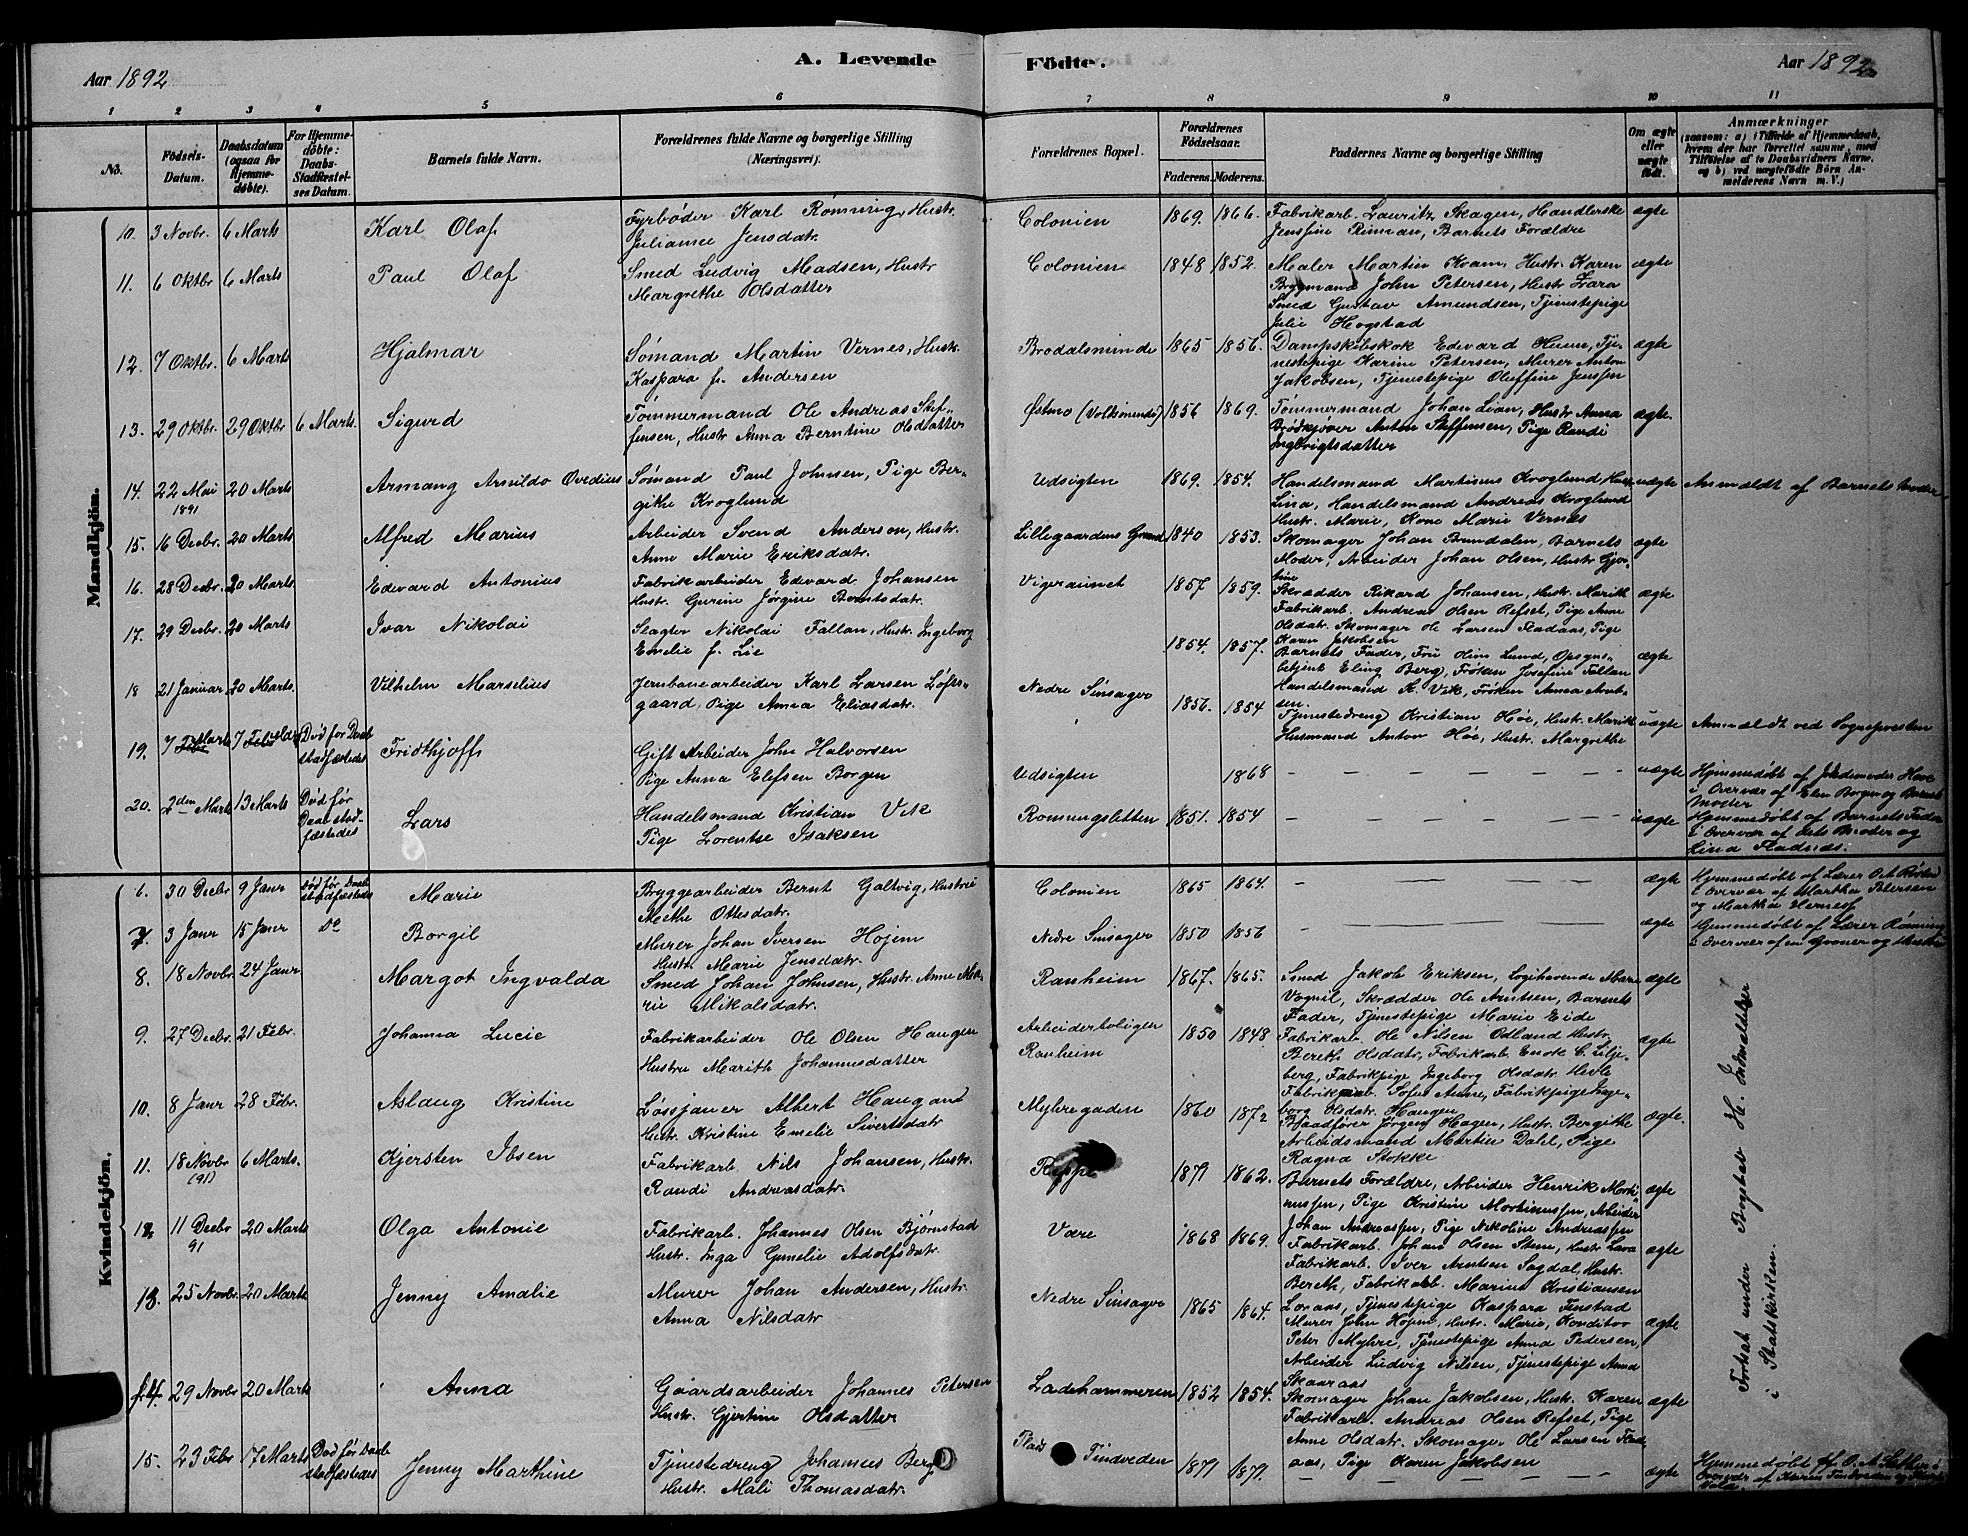 Aar 1892
A. Levende
Födte.
Aar 1892
1 2 3 4 5 6 7 8 9 10 11
No.
Födsels-
Datum.
Daabsdatum
(ogsaa for
Hjemme-
døbte).
For Hjemme-
døbte:
Daabs-
Stadfæstel-
ses Datum.
Barnets fulde Navn.
Forældrenes fulde Navne og borgerlige Stilling
(Næringsvei).
Forældrenes Bopæl.
Forældrenes
Födselsaar.
Faderens. Moderens.
Faddernes Navne og borgerlige Stilling
Om ægte
eller
uægte
født.
Anmærkninger
(saasom: a) i Tilfælde af Hjemmedaab,
hvem der har forrettet samme, med
Tilføielse af to Daabsvidners Navne,
og b) ved uægtefødte Börn An-
melderens Navn m. V.)
Mandkjön.
10. 3 Novbr. 6 Marts Karl Olaf
Fyrbøder Karl Rønning, Hustr.
Julianne Jensdatr.
Colonien 1869. 1866.
Fabrikarb. Lauritz Skagen, Handlerske
Jensine Rinnan, Barnets Forældre
ægte
11. 6 Oktbr 6 Marts Paul Olaf
Smed Ludvig Madsen, Hustr
Margrethe Olsdatter
Colonien 1848 1852.
Maler Martin Kvam, Hustr. Karen
Brygmand John Petersen, Hustr Lara
Smed Gustav Amundsen, Tjenestepige
Julie Hogstad
ægte
12. 7 Oktbr. 6 Marts Hjalmar
Sømand Martin Vernes, Hustr.
Kaspara f. Andersen
Brodalsminde 1865 1856.
Dampskibskok Edevard Huen, Tje-
nestepige Karine Petersen, Murer Anton
Jakobsen, Tjenestepige Oluffine Jenssen
ægte
13. 29 Oktbr. 29 Oktbr 6 Marts. Sigurd
Tømmermand Ole Andreas Stef-
fensen, Hustr Anna Berntine Olsdatter
Østmo (Volksminde) 1856 1869.
Tømmermand Johan Lian, Hustr Anna
Brødkjører Anton Steffensen, Pige Randi
Ingebrigtsdatter
ægte.
14. 22 Mai 20 Marts
1891
Armang Arnildo Ovedius
Sømand Paul Johnsen, Pige Ber-
githe Kroglund
Udsigten 1869. 1854.
Handelsmand Martinus Kroglund Hust
Lina, Handelsmand Andreas Kroglund
Hustr. Marie, Kone Marie Vernes
uægte
Anmeldt af Barnets Moder
15. 16 Decbr. 20 Marts Alfred Marius
Arbeider Svend Anderson, Hustr.
Anne Marie Eriksdatr.
Lillegaardens Grund 1840 1853.
Skomager Johan Brundalen, Barnets
Moder, Arbeider Johan Olsen, Hustr Gjer-
tine
ægte
16. 28 Decbr. 20 Marts Edevard Antonius
Fabrikarbeider Edevard Johansen
Hustr. Gurine Jørgine Berntsdatr.
Vigeraunet 1857 1859.
Skrædder Rikard Johansen, Hustr. Marith
Fabrikarb. Andreas Olsen Refset, Pige Anne
Olsdatr. Skomager Ole Larsen Fladaas, Pige
Karen Jakobsen
ægte
17. 29 Decbr. 20 Marts Ivar Nikolai
Slagter Nikolai Fallan, Hustr. Ingeborg
Emelie f. Lie
1854. 1857.
Barnets Fader, Fru Oline Lund, Opsyns-
betjent Eling Berg, Frøken Josefine Fallan
ægte
18 21 Januar 20 Marts. Vilhelm Marselius
Jernbanearbeider Karl Larsen Løfts-
gaard, Pige Anna Eliasdatr.
Nedre Sinsager 1856. 1854
Handelsmand K. Vik, Frøken Anna Arnt-
sen.
Tjenestedreng Kristian Høe, Hustr. Marith
Husmand Anton Høe, Hustr. Margrethe
uægte
Anmeldt ved Sognepresten
19. 7 Marts 7 Marts Død før Daab
stadfæstedes
Fridthjoff
Gift Arbeider John Halvorsen
Pige Anna Elefsen Borgen
Udsigten 1868 uægte
Hjemmedøbt af Jordemoder Hove
i Overvær af Elen Borgen og Barnets
Moder
20. 2den Marts 13 Marts Død før
Daab stad-
fæstedes
Lars
Handelsmand Kristian Vik
Pige Lorentse Isaksen
Romungsletten 1851. 1854 uægte
Hjemmedøbt af Barnets Fader
i Overvær af dets Moder og
Lina Fladnes.
Kvindekjön.
6. 30 Decbr 9 Janr Død før Daab
stadfæstedes
Marie
Bryggearbeider Bernt Galtvig, Hustru
Methe Ottesdatr.
Colonien 1865 1864. ægte
Hjemmedøbt af Lærer
i Overvær af Martha Petersen
og Martha Hernes
7. 3 Janr 15 Janr Do Borgil
Murer Johan Iversen Hojem
Hustr. Marie Jensdatr.
Nedre Sinsager 1850 1856 ægte
Hjemmedøbt af Lærer Rønning
i Overvær af en Groner og Hustru
8. 18 Novbr. 24 Janr Margot Ingvalda
Smed Johan Johnsen, Hustr. Anne Ma-
rie Mikalsdatr.
Ranheim 1867. 1865.
Smed Jakob Eriksen, Logihavende Mare
Vognil, Skrædder Ole Arntsen, Barnets
Fader, Tjenestepige Marie Eide
ægte
9. 27 Decbr. 21 Febr. Johanna Lucie
Fabrikarbeider Ole Olsen Haugen
Hustru Marith Johannesdatter
Arbeiderboligen
Ranheim
1850 1848
Fabrikarb. Ole Nilsen Odland Hustr.
Bereth Olsdatr, Fabrikarb Enok C. Lilje-
berg, Fabrikpige Ingeborg Olsdatr Hevle
Fabrikpige Sofie Anne, Fabrikpige Inge-
borg Olsdatr. Haugen
ægte
10. 8 Janr 28 Febr. Aslaug Kristine
Løssjauer Albert Haugand
Hustr. Kristine Emelie Sivertsdatr
Myhregaden 1860 1872
Baadfører Jørgen Hagen, Hustr. Bergithe
Arbeidsmand Martin Dahl, Pige
Ragna Stokke
ægte.
11. 18 Novbr 6 Marts.
(91)
Kjersten Ibsen
Fabrikarb. Nils Johansen, Hustr.
Randi Andreasdatr.
Reppe 1871 1862.
Barnets Forældre, Arbeider Henrik Morti-
nussen, Pige Kristine Mortinussen, Arbeider
Johan Andreassen, Pige Nikoline Andreassen
ægte
12. 11 Decbr 20 Marts
91
Olga Antonie
Fabrikarb. Johannes Olsen Bjørnstad
Hustr. Inga Gunelie Adolfsdatr.
Være 1868 1869.
Fabrikarb. Johan Olsen Steen, Hustr Lava
Fabrikarb. Iver Arntsen Sagdal, Hustr.
Bereth, Fabrikarb. Marius Kristiansen
Loraas, Tjenestepige Kaspara Finstad
ægte
13. 25 Novbr. 20 Marts Jenny Amalie
Murer Johan Andersen, Hustr.
Anna Nilsdatr
Nedre Sinsager 1865 1864.
Murer John Hojem, Hustr. Marie, Konditor
Peter Myhre, Tjenestepige Anna Pedersen,
Arbeider Ludvig Nilsen, Tjenestepige Anna
Skaaraas
ægte
14. 29 Novbr 20 Marts Anna
Gaardsarbeider Johannes Petersen
Hustr. Gjertine Olsdatter
Ladehammeren 1852 1854.
Skomager Johan Jakobsen, Hustr. Karen
Fabrikarb. Andreas Olsen Refset, Pige
Anne Olsdatr. Skomager Ole Larsen Flad-
aas, Pige Karen Jakobsen
ægte
15. 23 Febr 17 Marts Død før Daab
stadfæstedes
Jenny Marthine
Tjenestedreng Johannes Berg
Hustr. Mali Thomasdatr.
Plads Tindveden 1871 1871. ægte
Hjemmedøbt af O. A. Sæther i
Overvær af Karen Tindveden og
Fortsat under Bogstab H. Indmeldelser
i Statskirken.